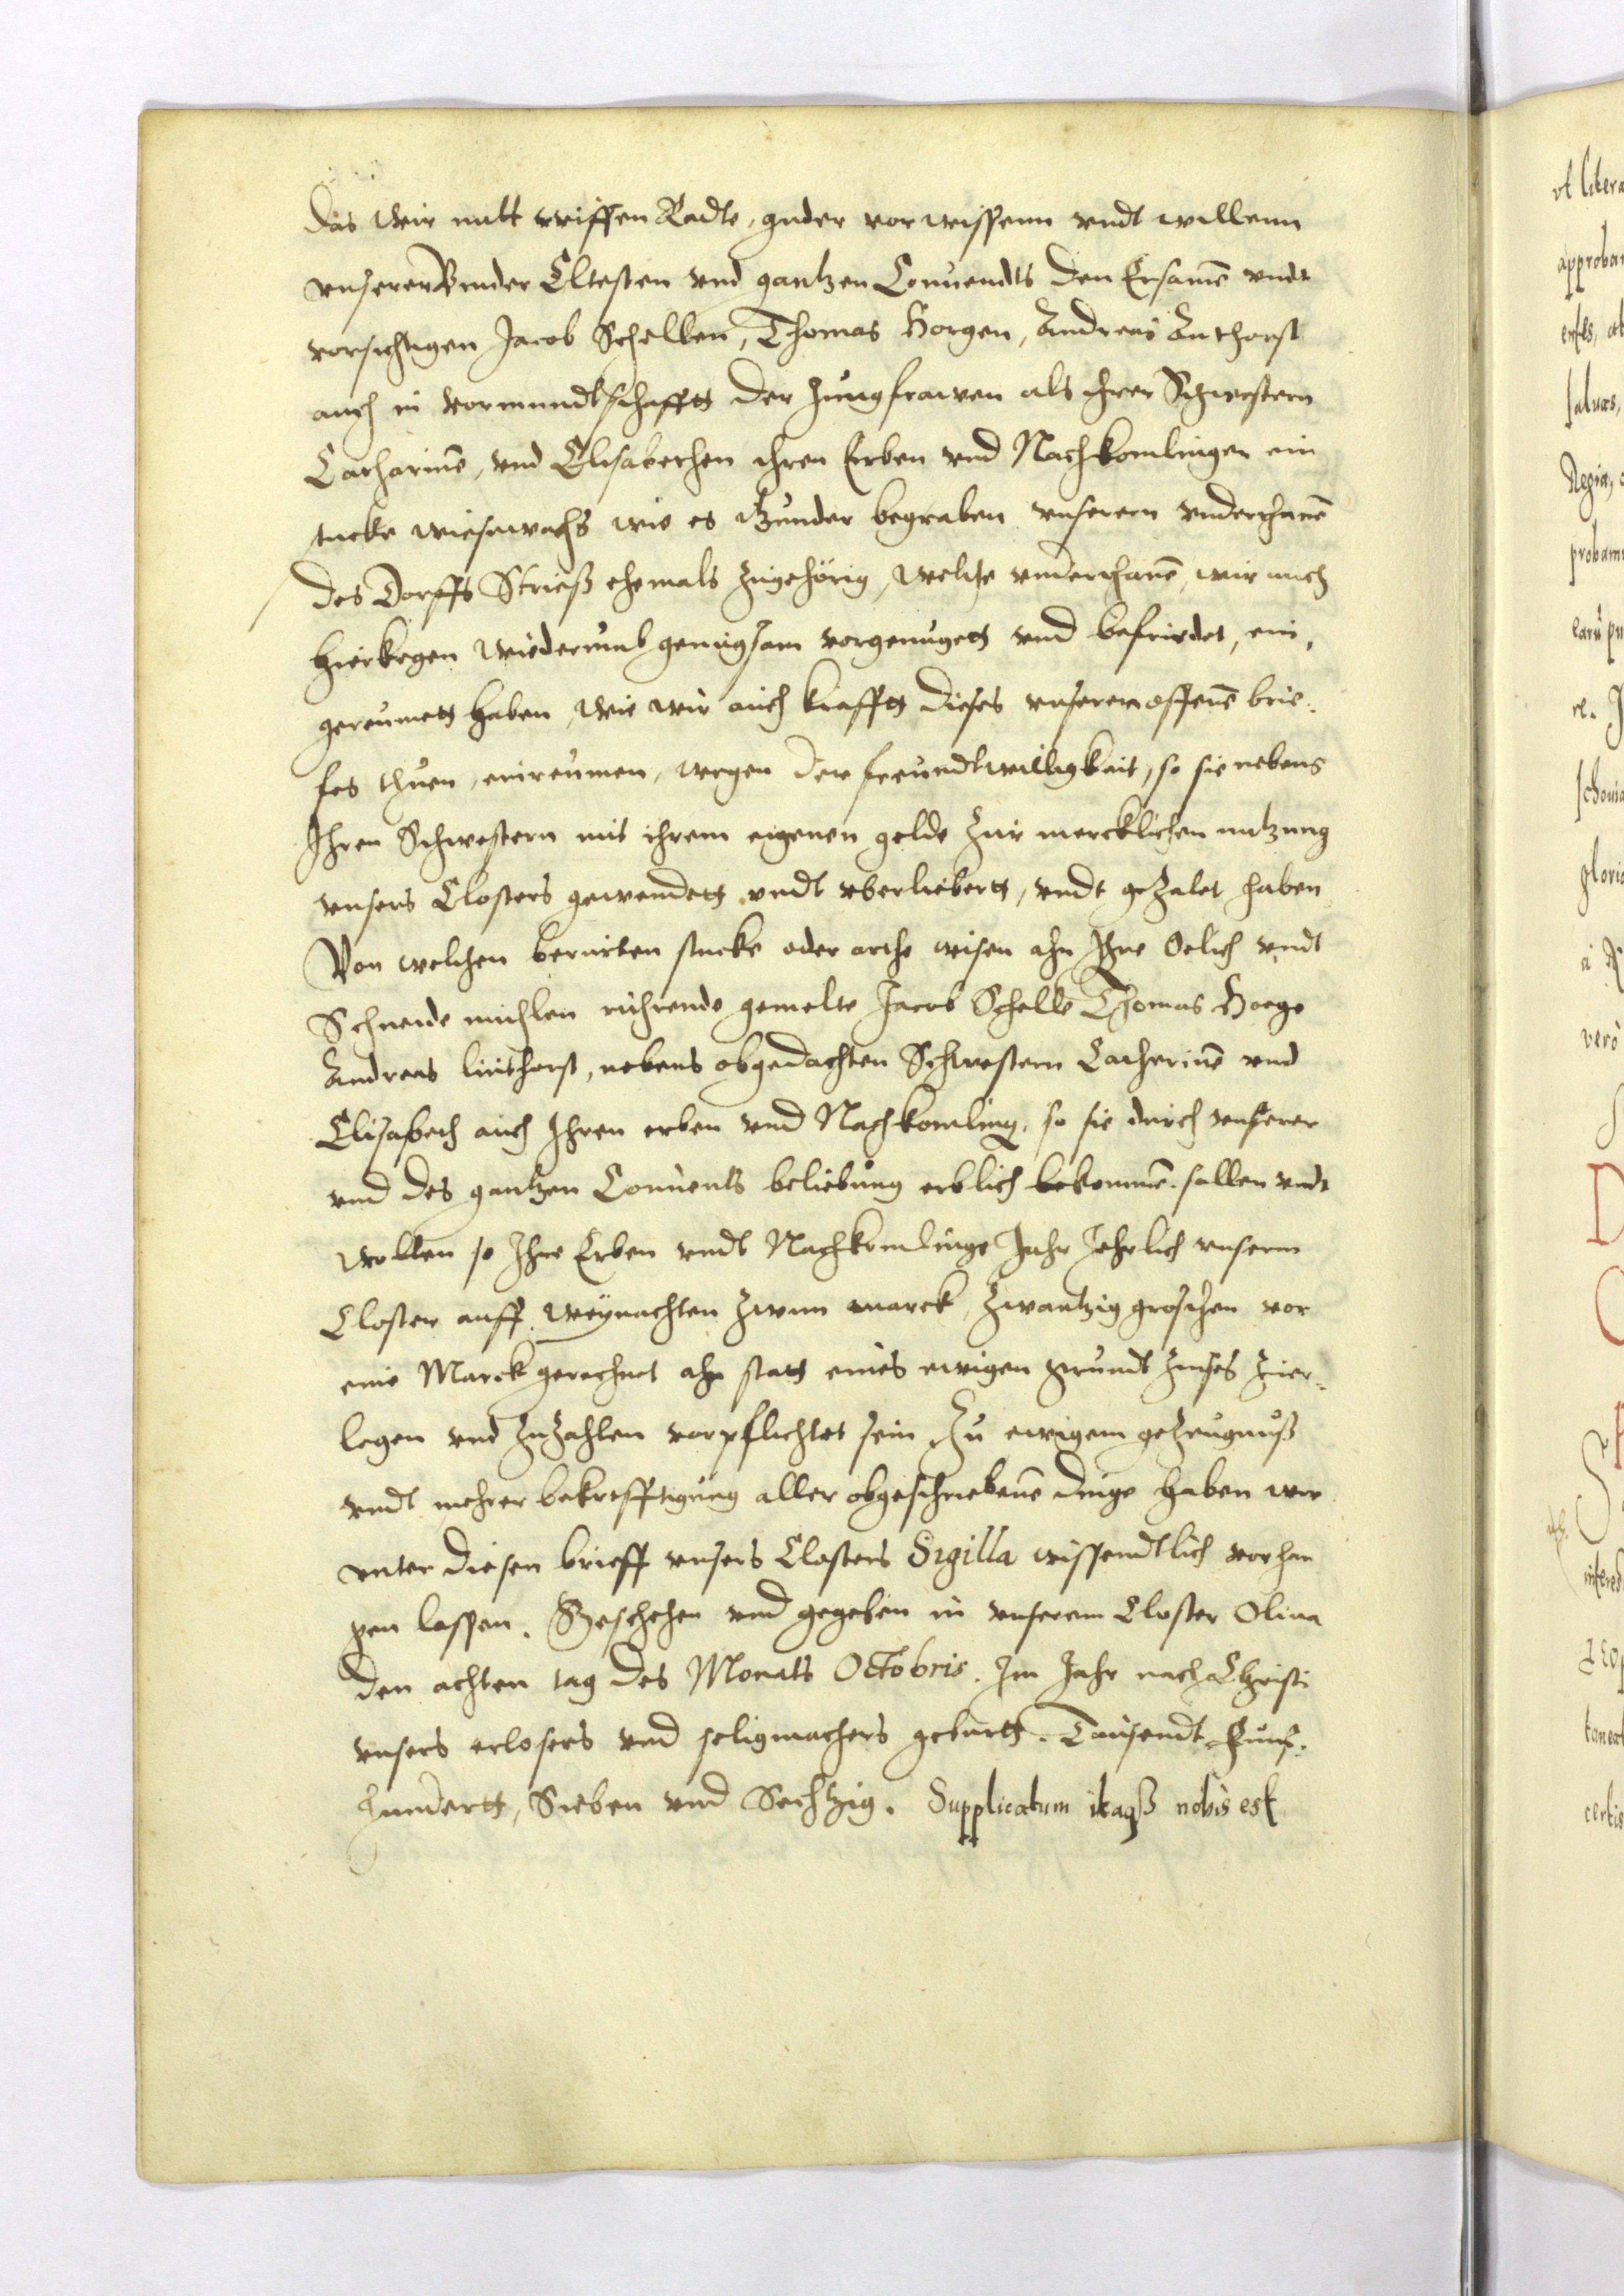 das wir mitt reiffen Radte, guder vorwissenn undt willenn
unserer Bruder Eltesten und gantzen Conuendts den Ersamē undt
vorsichtigen Jacob Schellen, Thomas Horgen, Andreas Linthorst
auch in vormundtschafft der Jungfrawen als ihrer Schwestern
Catharinē, und Elisabethen ihren Erben und Nachkomlingen ein
stucke wiesewachs wie es itzunder begraben unseren underthanē
des Dorffs Strieß ehemals zugehörig, welche underthanē, wir auch
hierkegen wiederumb genugsam vorgenugett und befriedet, ein,
gereumett haben, wie wir auch krafft dieses unseren offenē brie-
fes thuen, einreumen, wegen der freundtwilligkeit, so sie nebens
Ihren Schwestern mit ihrem eigenen gelde zur mercklichen nutzung
unsers Closters gewendett undt uberliebertt, undt gezalet haben
Von welchen berurten stucke oder orthe wisen ahn Ihre Oelich undt
Schneide muhlen rührende gemelte Jacob Schelle Thomas Horge
Andreas linthorst, nebens obgedachten Schwestern Catherinē und
Elisabeth auch Ihren erben und Nachkomling, so sie durch unserer
und des gantzen Conuents beliebung erblich bekommē sollen undt
wollen so Ihre Erben undt Nachkomlinge Jahr Jehrlich unserm
Closter auff weynachten zwenn marck, zwantzig groschen vor
eine Marck gerechnet ahn statt eines ewigen grundt zinses zuer-
legen und zuzahlen vorpflichtet sein, Zu ewigem gezeugnuß
undt mehrer bekrefftigung aller obgeschriebenē dinge haben wir
unter diesen brieff unsers Closters Sigilla wissendtlich vorhan
gen lassen. Geschehen und gegeben in unserem Closter Oliua
den achten tag des Monats Octobris. Im Jahr nach Christi
unsers erlosers und seligmachers geburtt. Tausendt Funf-
hundertt, Sieben und Sechtzig. Supplicatum itaqß nobis est